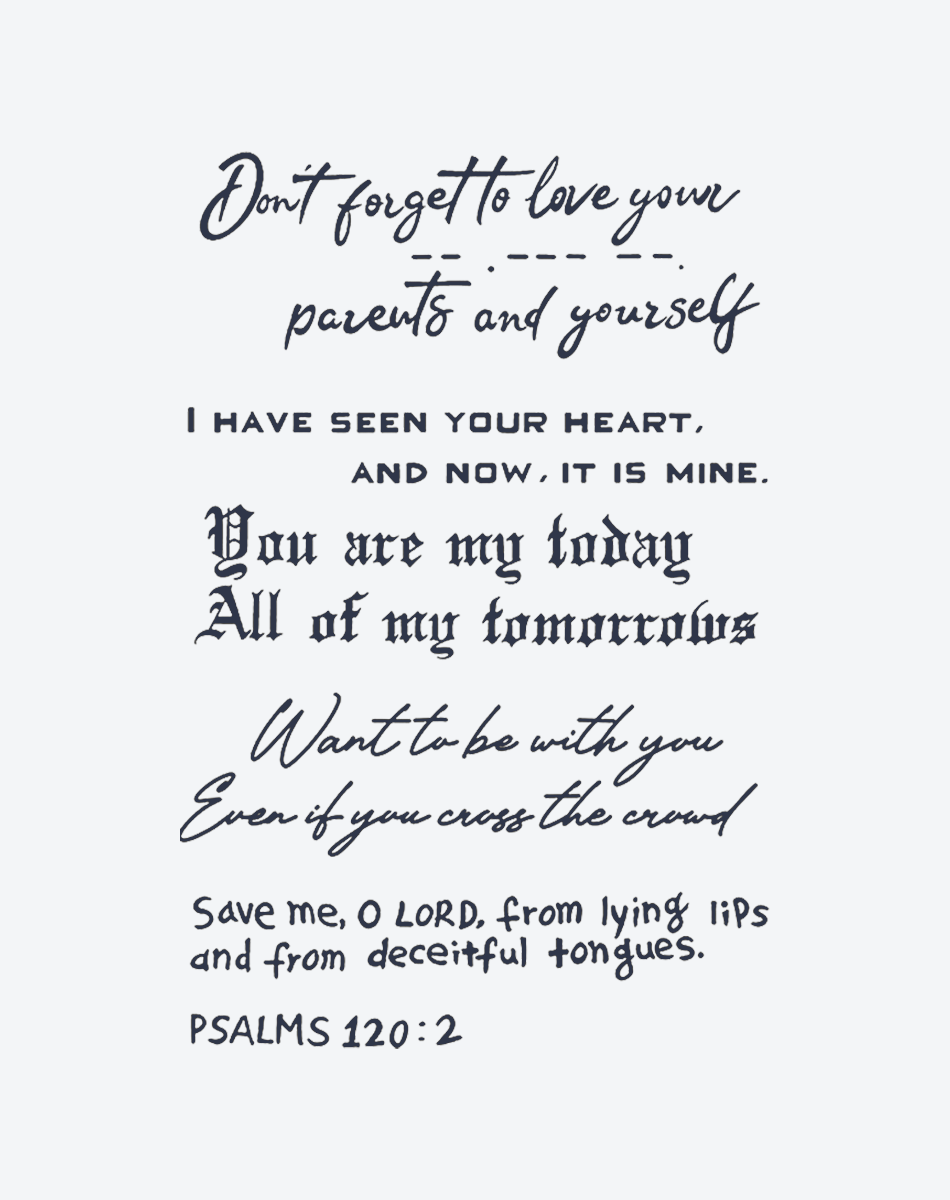 Don't forget to love your
-- .--- --.
parents and yourself
I HAVE SEEN YOUR HEART,
AND NOW, IT IS MINE.
You are my today
All of my tomorrows
Want to be with you
Even if you cross the crowd
Save me, O LORD, from lying lips
and from deceitful tongues.
PSALMS 120:2